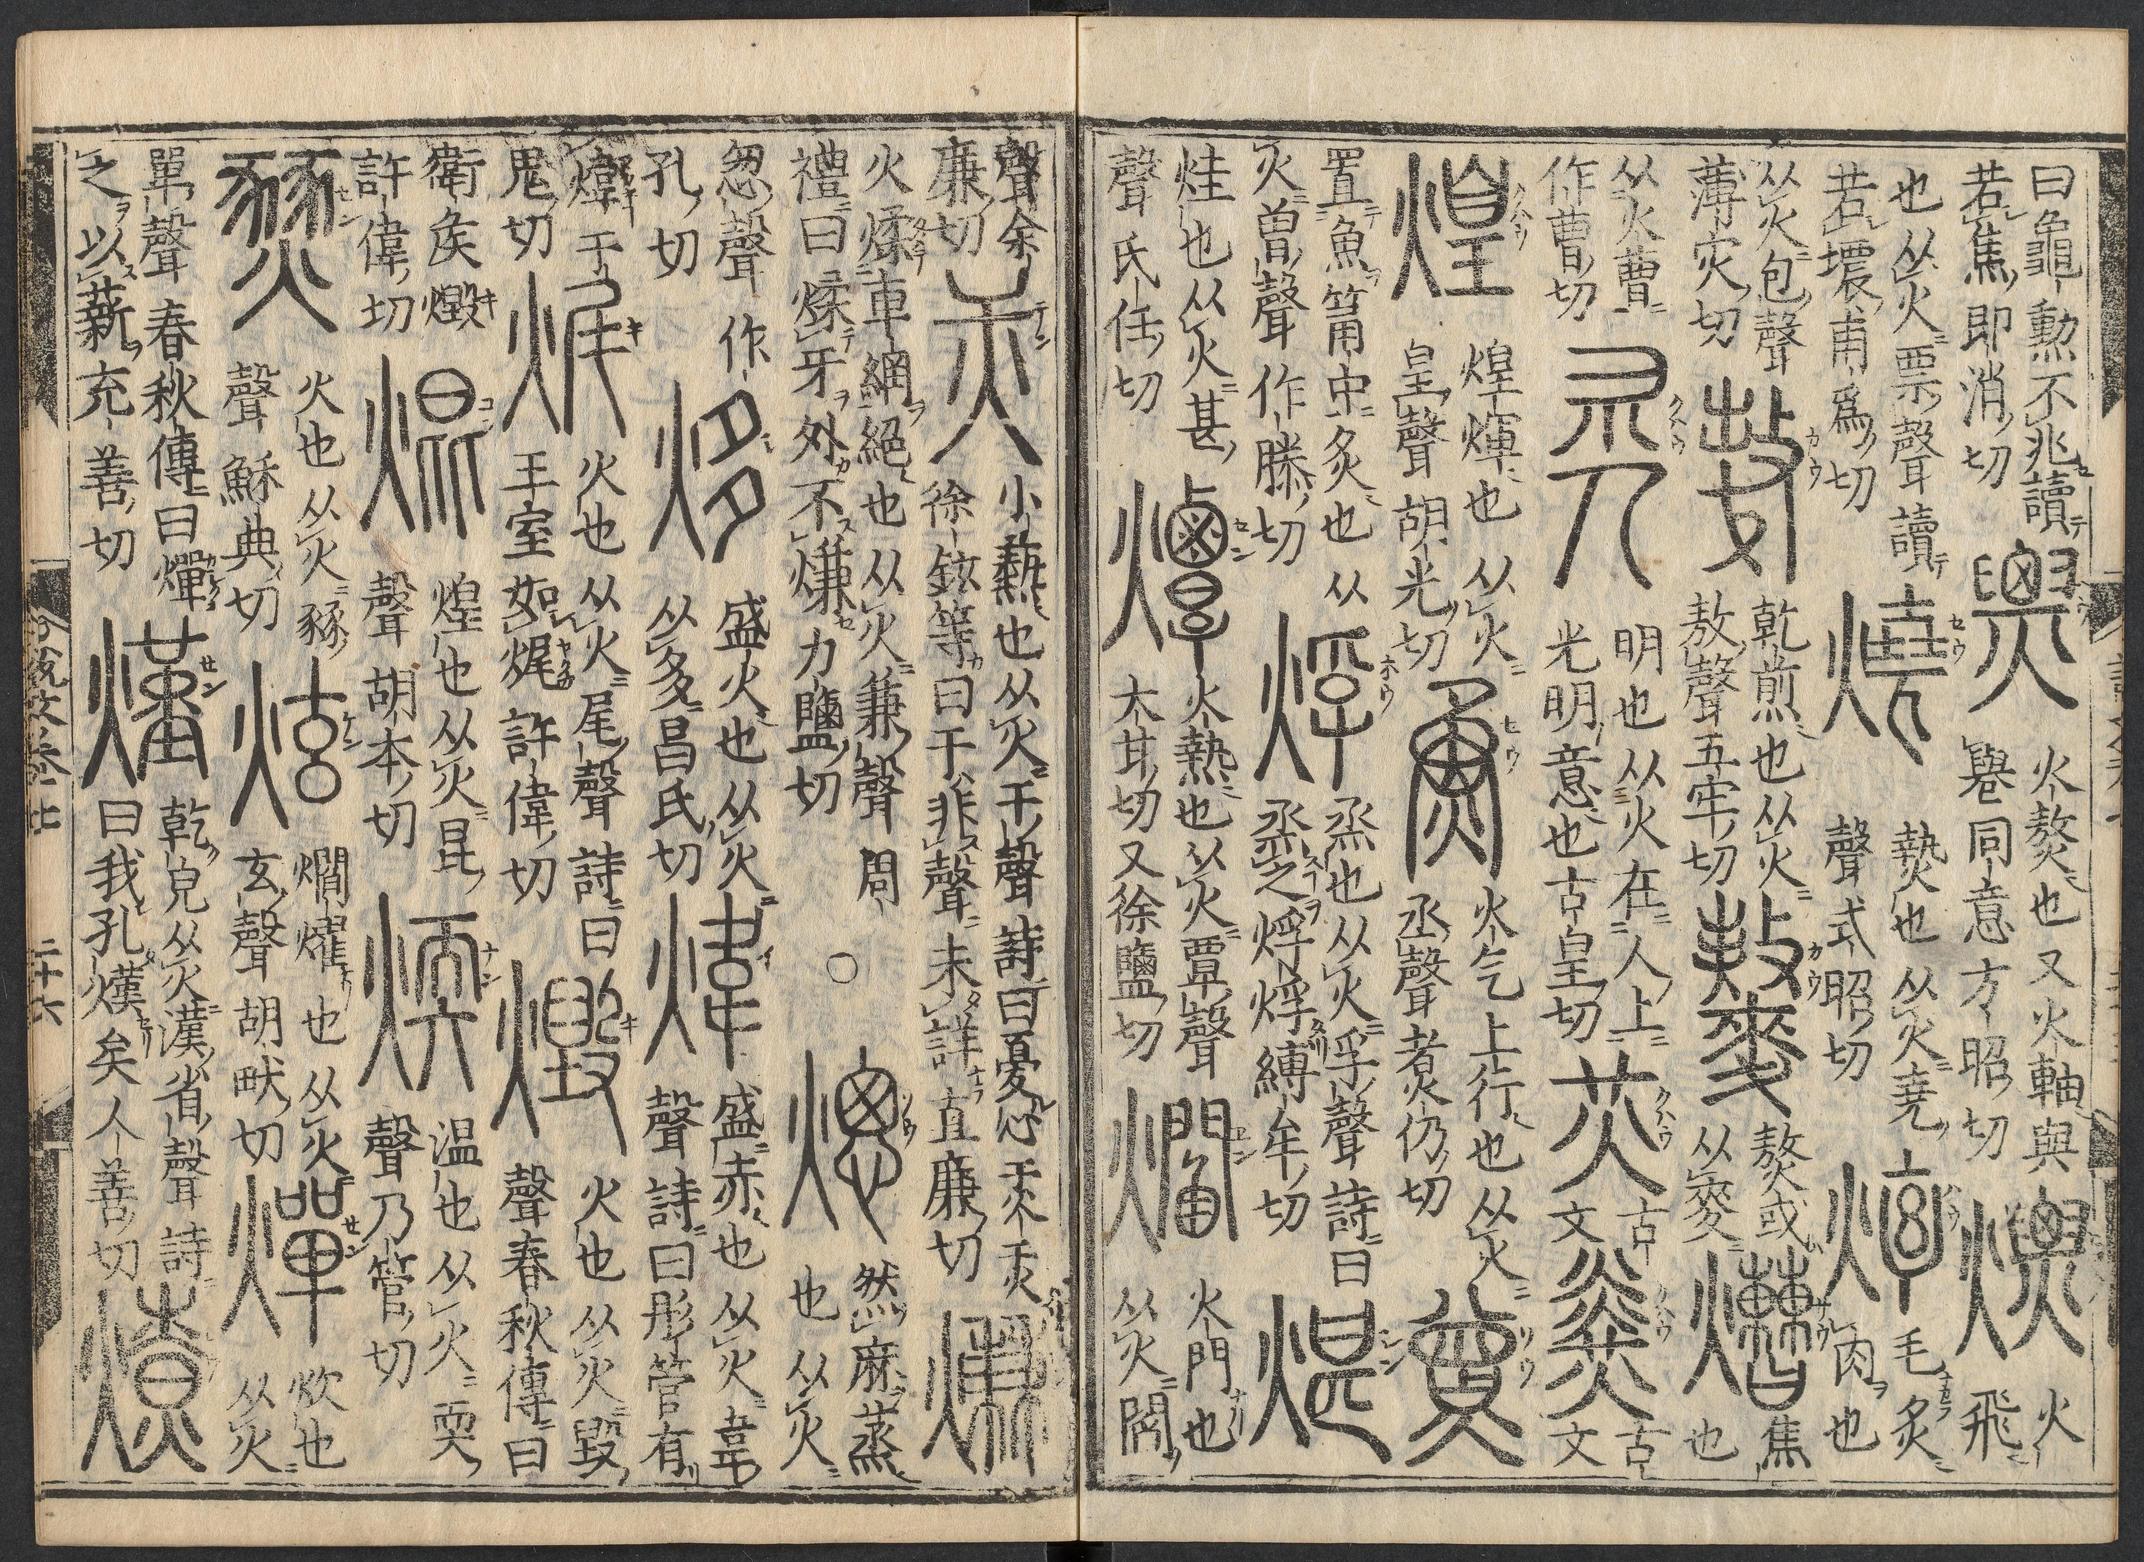 曰龜勳不兆讀
若焦即消切
火熬也又火軸與
同意方昭切
熛
火
飛
也从火票聲讀
若壞甫爲切
燒
爇也从火堯
聲式昭切
毛炙
肉也
从火包聲
薄灾切
熬
乾煎也从火
敖聲五牢切
䵅
熬或
从麥
焦
也
从火曹
作曹切
光
明也从火在人上
光明意也古皇切
古
文
古
文
煌
煌煇也从火
皇聲胡光切
烝
火气上行也从火
丞聲煑仍切
置魚筩中炙也从
火曾聲作滕切
烰
烝也从火孚聲詩曰
烝之烰烰縛牟切
煁
烓也从火甚
聲氏任切
燂
火熱也从火覃聲
大甘切又徐鹽切
爓
火門也
从火閻
聲余
廉切
𤆍
小熱也从火干聲詩曰憂心𤆍𤆍
徐鉉等曰干非聲未詳直廉切
熑
火煣車網絕也从火兼聲周
禮曰煣牙外不熑力鹽切
○
熜
然麻蒸
也从火
怱聲作
孔切
盛火也从火
从多昌氏切
煒
盛赤也从火韋
聲詩曰彤管有
煒于
鬼切
㷄
火也从火尾聲詩曰
王室如㷄許偉切
燬
火也从火毀
聲春秋傳曰
衛矦燬
許偉切
焜
煌也从火昆
聲胡本切
煗
温也从火耎
聲乃管切
燹
火也从火豩
聲穌典切
炫
爓燿也从火
玄聲胡畎切
燀
炊也
从火
單聲春秋傳曰燀
之以薪充善切
熯
乾皃从火漢省聲詩
曰我孔熯矣人善切
說文卷七 二十六